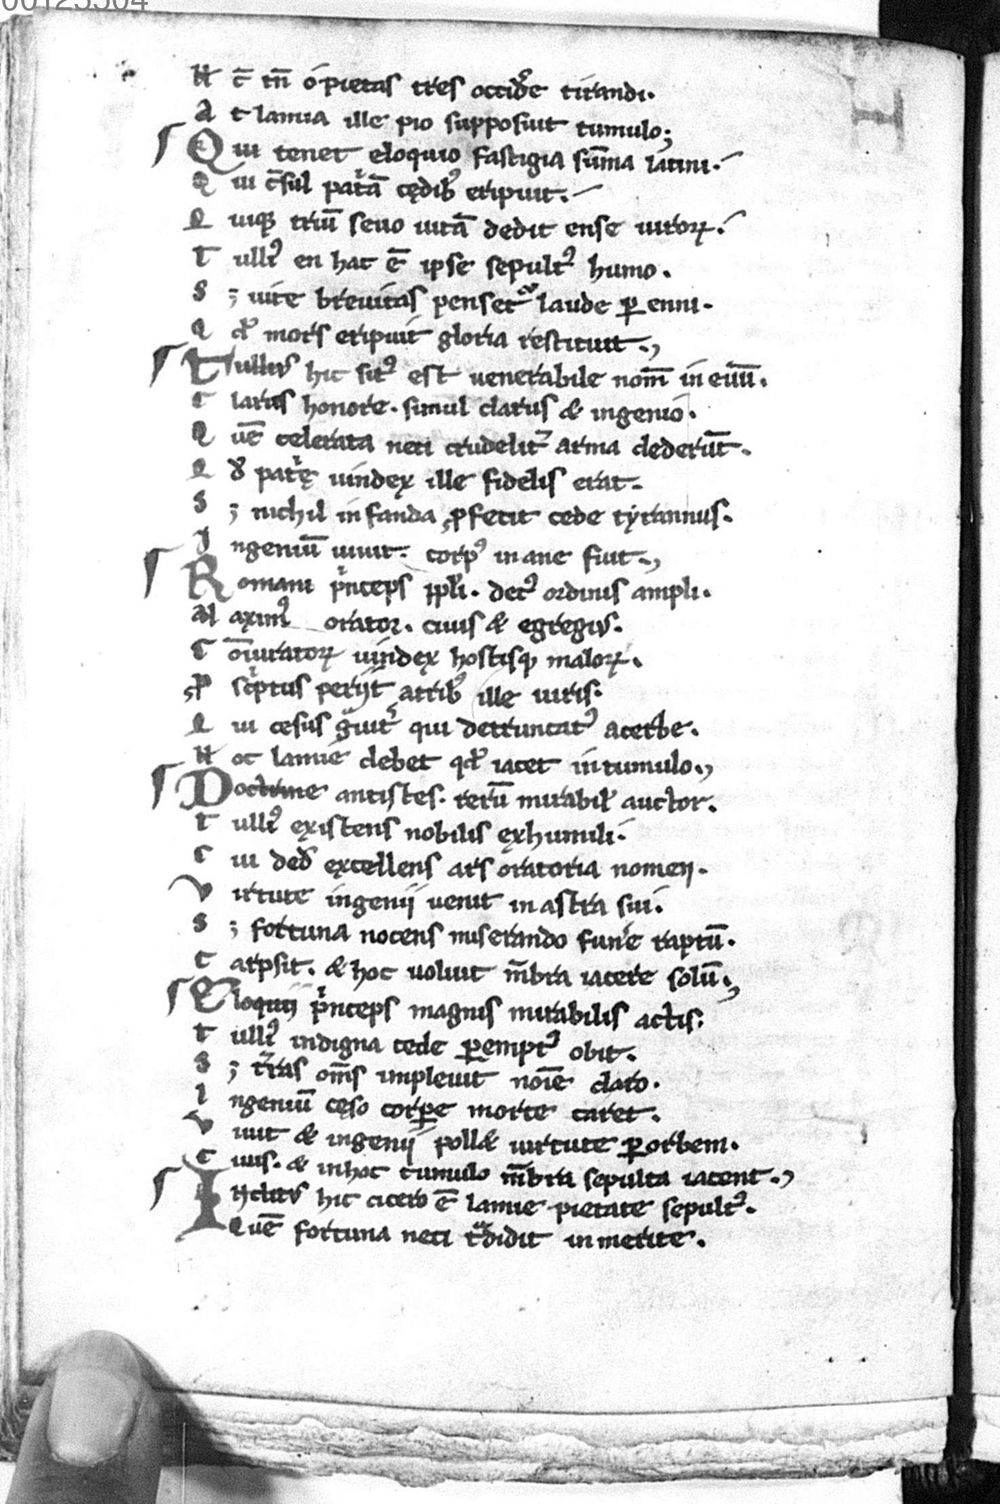 00125504
N c̄ tn̄ o pietas tres occid̄e tirandi.
A t lamia ille pio supposuit tumulo;
Q ui tenet eloquio fastigia sūma latini.
Q ui c̄sul patͥā cędibꝰ eripuit.
Q uiqꝫ triū seuo uitā dedit ense uiroꝝ.
T ullꝰ en hac ē ipse sepultꝰ humo.
S ꝫ uite breuitas penset laude ꝑ enni.
Q d̄ mors eripuit gloria restituit.
Tullius hic sitꝰ est uenerabile nom̄ in euū.
C larus honore. simul clarus & ingenio.
Q uē celerata neci crudelit̄ arma dederūt.
Q d̄ patͥę uindex ille fidelis erat.
S ꝫ nichil infanda ꝓfecit cede tyrannus.
I ngeniū uiuit. corpꝰ inane fuit.
Romani pͥnceps ppl̄i. decꝰ ordinis ampli.
M aximꝰ orator. ciuis & egregius.
C ōiuratoꝝ uindex hostisqꝫ maloꝝ.
ꝓ scͥptus periit atribꝰ ille uiris.
Q ui cesus gͣuit̄ qui detruncatꝰ acerbe.
H oc lamie debet qd̄ iacet in tumulo.
Doctrine antistes. rerū mirabil̄ auctor.
T ullꝰ existens nobilis exhumili.
C ui ded̄ excellens ars oratoria nomen.
V irtute ingenii uenit in astra sui.
S ꝫ fortuna nocens miserando fun̄e raptū.
C arpsit. & hoc uoluit m̄bra iacere solū.
Eloquii pͥnceps magnis mirabilis actis.
T ullꝰ indigna cede ꝑemptꝰ obit.
S ꝫ t̄ras om̄s impleuit noīe claro.
I ngeniū cęso corꝑe morte caret.
V iuit & ingenii poll& uirtute ꝑ orbem.
C iuis. & inhoc tumulo m̄bra sepulta iacent.
Inclitus hic cicero ē lamie pietate sepultꝰ.
Quē fortuna neci tͣdidit inmerite.